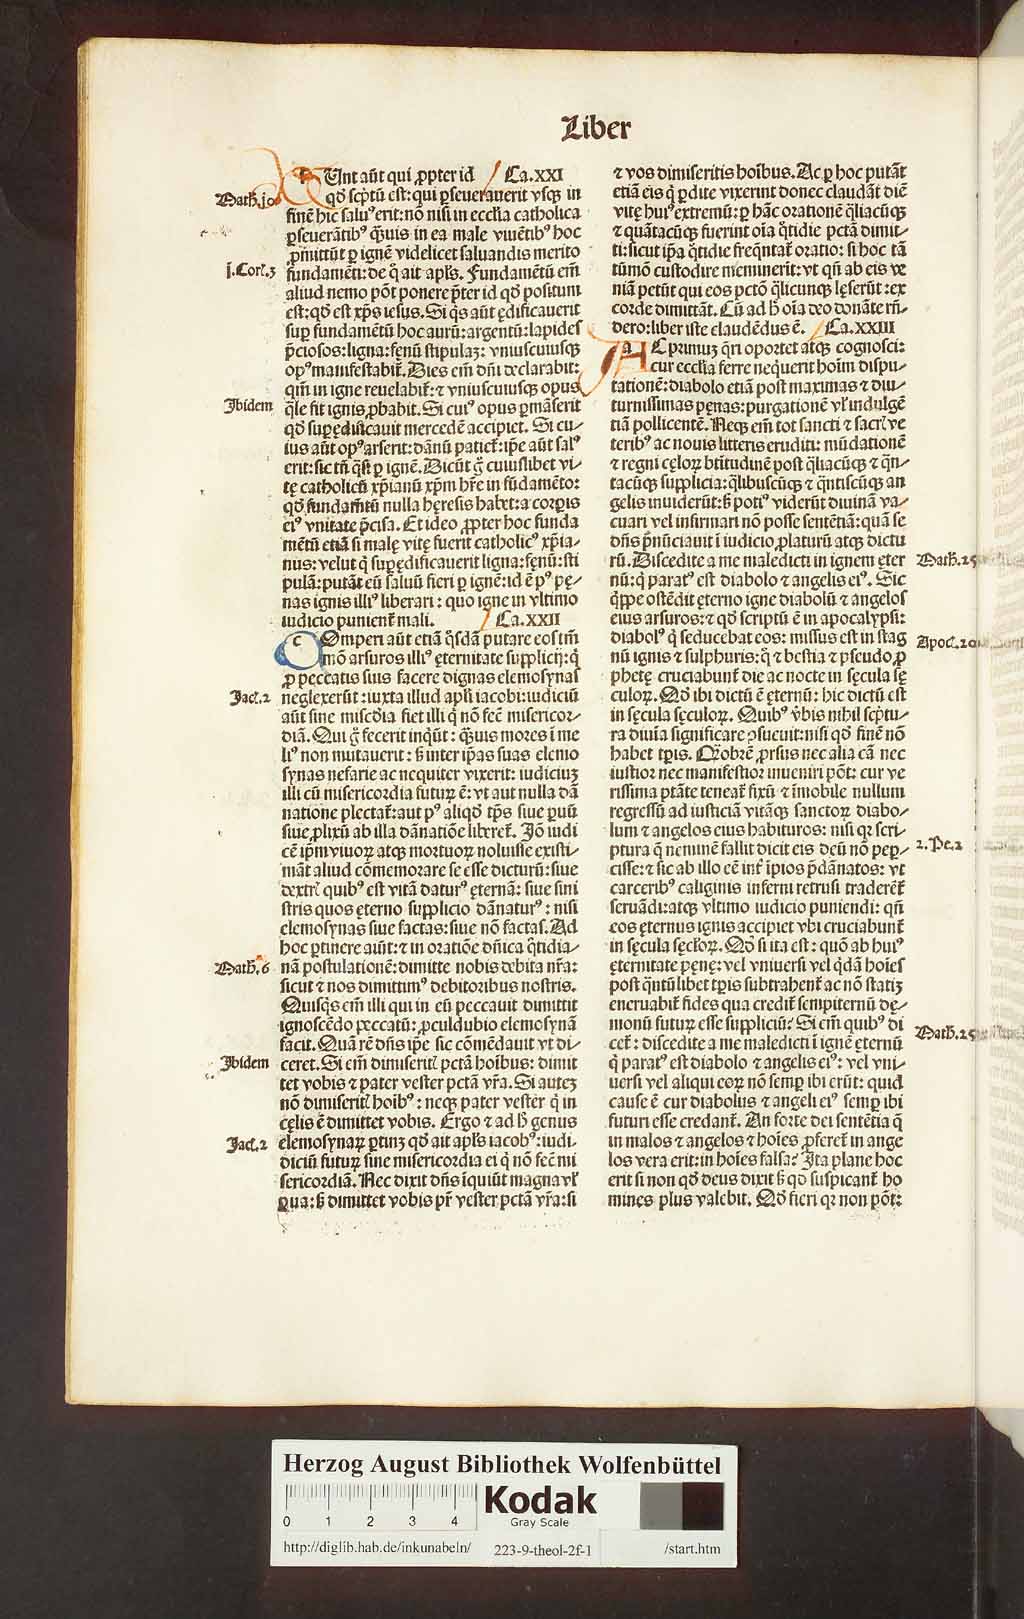 Liber
Sunt aūt qui ꝓpter id Ca.XXI
qđ scꝑtū est: qui ꝑseuerauerit vsqꝫ in
finē hic saluꝰ erit: nō nisi in eccl̄ia catholica
ꝑseuerātibꝰ q̄uis in ea male viuētibꝰ hoc
ꝓmittūt ꝑ ignē videlicet saluandis merito
fundamēti: de q̄ ait apl̄s. Fundamētū em̄
aliud nemo pōt ponere p̄ter id qđ positum
est: qđ est xp̄s iesus. Si q̄s aūt ędificauerit
suꝑ fundamētū hoc aurū: argentū: lapides
p̄ciosos: ligna: fęnū stipulaꝫ: vniuscuiusqꝫ
opꝰ manifestabit̄. Dies em̄ dn̄i declarabit:
qm̄ in igne reuelabit̄: ⁊ vniuscuiusqꝫ opus
q̄le sit ignis ꝓbabit. Si cuiꝰ opus ꝑmāserit
qđ suꝑędificauit mercedē accipiet. Si cu⸗
ius aūt opꝰ arserit: dānū patiet̄: ip̄e aūt salꝰ
erit: sic tn̄ q̄si ꝑ ignē. Dicūt g̊ cuiuslibet vi⸗
tę catholicū xp̄ianū xp̄m hr̄e in fūdamēto:
qđ fundam̄tū nulla hęresis habet: a corꝑis
eiꝰ vnitate p̄cisa. Et ideo ꝓpter hoc funda
mētū etiā si malę vitę fuerit catholicꝰ xp̄ia⸗
nus: velut q̄ suꝑędificauerit ligna: fęnū: sti
pulā: putāt eū saluū fieri ꝑ ignē: id ē pꝰ pę⸗
nas ignis illiꝰ liberari: quo igne in vltimo
iudicio punient̄ mali. Ca.XXII
Comperi aūt etiā q̄sdā putare eos tm̄
mō arsuros illiꝰ ęternitate supplicij: q̄
ꝓ peccatis suis facere dignas elemosynas
neglexerūt: iuxta illud apl̄i iacobi: iudiciū
aūt sine misc̄dia fiet illi q̄ nō fec̄ misericor⸗
diā. Qui g̊ fecerit inq̄ūt: q̄uis mores ī me
liꝰ non mutauerit: s̄ inter ip̄as suas elemo
synas nefarie ac nequiter vixerit: iudiciuꝫ
illi cū misericordia futurꝝ ē: vt aut nulla dā
natione plectat̄: aut pꝰ aliqđ tp̄s siue ꝑuū
siue ꝓlixū ab illa dānatiōe liberet̄. Jō iudi
cē ip̄m viuoꝝ atqꝫ mortuoꝝ noluisse existi⸗
māt aliud cōmemorare se esse dicturū: siue
dextrl̄ quibꝰ est vitā daturꝰ ęternā: siue sini
stris quos ęterno supplicio dānaturꝰ: nisi
elemosynas siue factas: siue nō factas. Ad
hoc ꝑtinere aiūt: ⁊ in oratiōe dn̄ica q̄tidia⸗
nā postulationē: dimitte nobis debita nr̄a:
sicut ⁊ nos dimittimꝰ debitoribus nostris.
Quisq̄s em̄ illi qui in eū peccauit dimittit
ignoscēdo peccatū: ꝓculdubio elemosynā
facit. Quā rē dn̄s ip̄e sic cōmēdauit vt di⸗
ceret. Si em̄ dimiseritl̄ pctā hoībus: dimit
tet vobis ⁊ pater vester pctā vr̄a. Si auteꝫ
nō dimiseritl̄ hoībꝰ: neqꝫ pater vester q̄ in
cęlis ē dimittet vobis. Ergo ⁊ ad h̄ genus
elemosynaꝝ ꝑtinꝫ qđ ait apl̄s iacobꝰ: iudi⸗
diciū futurꝝ sine misericordia ei q̄ nō fec̄ mi
sericordiā. Nec dixit dn̄s īquiūt magna vl̄
ꝑua: s̄ dimittet vobis pr̄ vester pctā vr̄a: si
⁊ vos dimiseritis hoībus. Ac ꝑ hoc putāt
etiā eis q̄ ꝑdite vixerint donec claudāt diē
vitę huiꝰ extremū: ꝑ hāc orationē q̄liacūqꝫ
⁊ quātacūqꝫ fuerint oīa q̄tidie pctā dimit⸗
ti: sicut ip̄a q̄tidie freq̄ntat̄ oratio: si hoc tā
tūmō custodire meminerit: vt qn̄ ab eis ve
niā petūt qui eos pctō q̄licunqꝫ lęserūt: ex
corde dimittāt. Cū ad h̄ oīa deo donāte rn̄
dero: liber iste claudēdus ē. Ca.XXIII
AC primuꝫ q̄ri oportet atqꝫ cognosci:
cur eccl̄ia ferre nequerit hoīm dispu⸗
tationē: diabolo etiā post maximas ⁊ diu⸗
turnissimas pęnas: purgationē vl̄ indulgē
tiā pollicentē. Neqꝫ em̄ tot sancti ⁊ sacrl̄ ve
teribꝰ ac nouis litteris eruditi: mūdationē
⁊ regni cęloꝝ btītudinē post q̄liacūqꝫ ⁊ q̄n⸗
tacūqꝫ supplicia: q̄libuscūqꝫ ⁊ q̄ntiscūqꝫ an
gelis inuiderūt: s̄ potiꝰ viderūt diuinā va⸗
cuari vel infirmari nō posse sentētiā: quā se
dn̄s p̄nūciauit ī iudicio ꝓlaturū atqꝫ dictu
rū. Discedite a me maledicti in ignem ęter
nū: q̄ paratꝰ est diabolo ⁊ angelis eiꝰ. Sic
q̄ppe ostēdit ęterno igne diabolū ⁊ angelos
eius arsuros: ⁊ qđ scriptū ē in apocalypsi:
diabolꝰ q̄ seducebat eos: missus est in stag
nū ignis ⁊ sulphuris: q̄ ⁊ bestia ⁊ pseudo ꝓ
phetę cruciabunt̄ die ac nocte in sęcula sę
culoꝝ. Qđ ibi dictū ē ęternū: hic dictū est
in sęcula sęculoꝝ. Quibꝰ v̄bis nihil scp̄tu⸗
ra diuīa significare ꝯsueuit: nisi qđ finē nō
habet tp̄is. Qr̄obrē ꝓrsus nec alia cā nec
iustior nec manifestior inueniri pōt: cur ve
rissima ptāte teneat̄ fixū ⁊ īmobile nullum
regressū ad iusticiā vitāqꝫ sanctoꝝ diabo⸗
lum ⁊ angelos eius habituros: nisi qꝛ scri⸗
ptura q̄ neminē fallit dicit eis deū nō peꝑ⸗
cisse: ⁊ sic ab illo eē int̄ īpios p̄dānatos: vt
carceribꝰ caliginis inferni retrusi traderēt̄
seruādi: atqꝫ vltimo iudicio puniendi: qn̄
eos ęternus ignis accipiet vbi cruciabunt̄
in sęcula sęcl̄oꝝ. Qđ si ita est: quō ab huiꝰ
ęternitate pęnę: vel vniuersi vel q̄dā hoīes
post q̄ntūlibet tp̄is subtrahent̄ ac nō statiꝫ
eneruabit̄ fides qua credit̄ sempiternū dę⸗
monū futurꝝ esse suppliciū? Si em̄ quibꝰ di
cet̄: discedite a me maledicti ī ignē ęternū
q̄ paratꝰ est diabolo ⁊ angelis eiꝰ: vel vni⸗
uersi vel aliqui eoꝝ nō semꝑ ibi erūt: quid
cause ē cur diabolus ⁊ angeli eiꝰ semꝑ ibi
futuri esse credant̄. An forte dei sentētia q̄
in malos ⁊ angelos ⁊ hoīes ꝓferet̄ in ange
los vera erit: in hoīes falsa? Ita plane hoc
erit si non qđ deus dixit s̄ qđ suspicant̄ ho
mines plus valebit. Qđ fieri qꝛ non pōt:
Math.10
j.Cor.3
Ibidem
Jac.2
Math.6
Ibidem
Jac.2
Math.25
Apoc.20
2.Pe.2
Math.25
Herzog August Bibliothek Wolfenbüttel
0 1 2 3 4
Kodak
Gray Scale
http://diglib.hab.de/inkunabeln/ 223-9-theol-2f-1 /start.htm